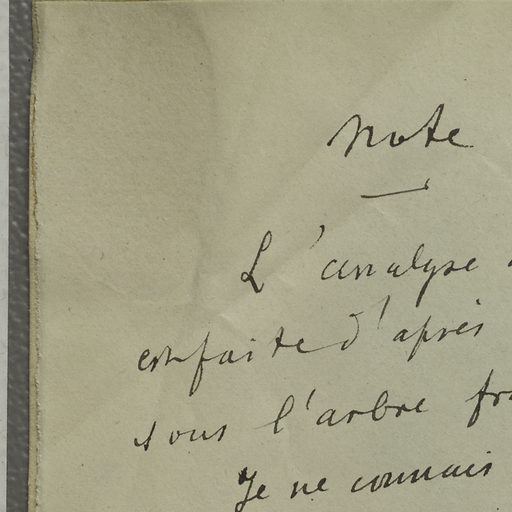 Note
L'analyse
est faite d'après
sous l'arbre
Je ne connais